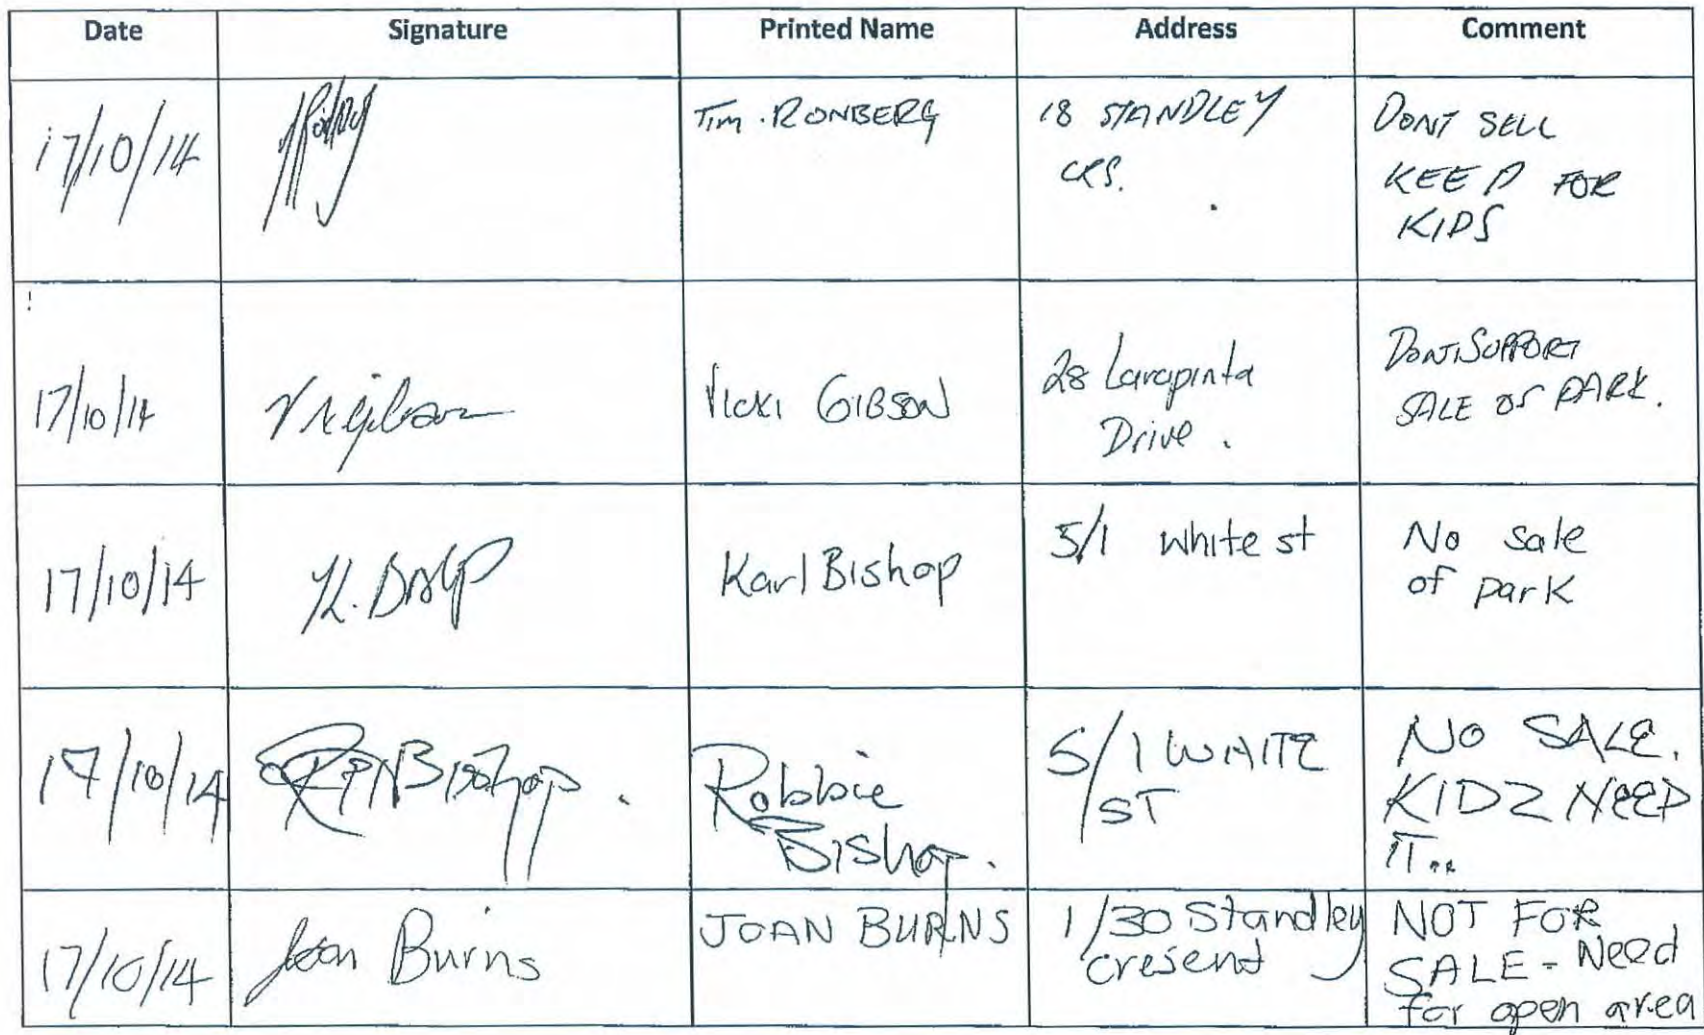 Date Signature Printed Name Address Comment
17/10/14 Tim. RONBERG 18 STANDLEY DONT SELL
CRS. KEEP FOR
KIDS
17/10/14 Vicki GIBSON 28 Larapinta DONT SUPPORT
Drive. SALE OF PARK.
17/10/14 K. Karl Bishop 5/1 White st No Sale
of park
17/10/14 Bishop. Robbie 5/1 WHITE NO SALE.
Bishop. ST KIDZ NEED
IT..
17/10/14 Joan Burns JOAN BURNS 1/30 Standley NOT FOR
cresent SALE - Need
for open area